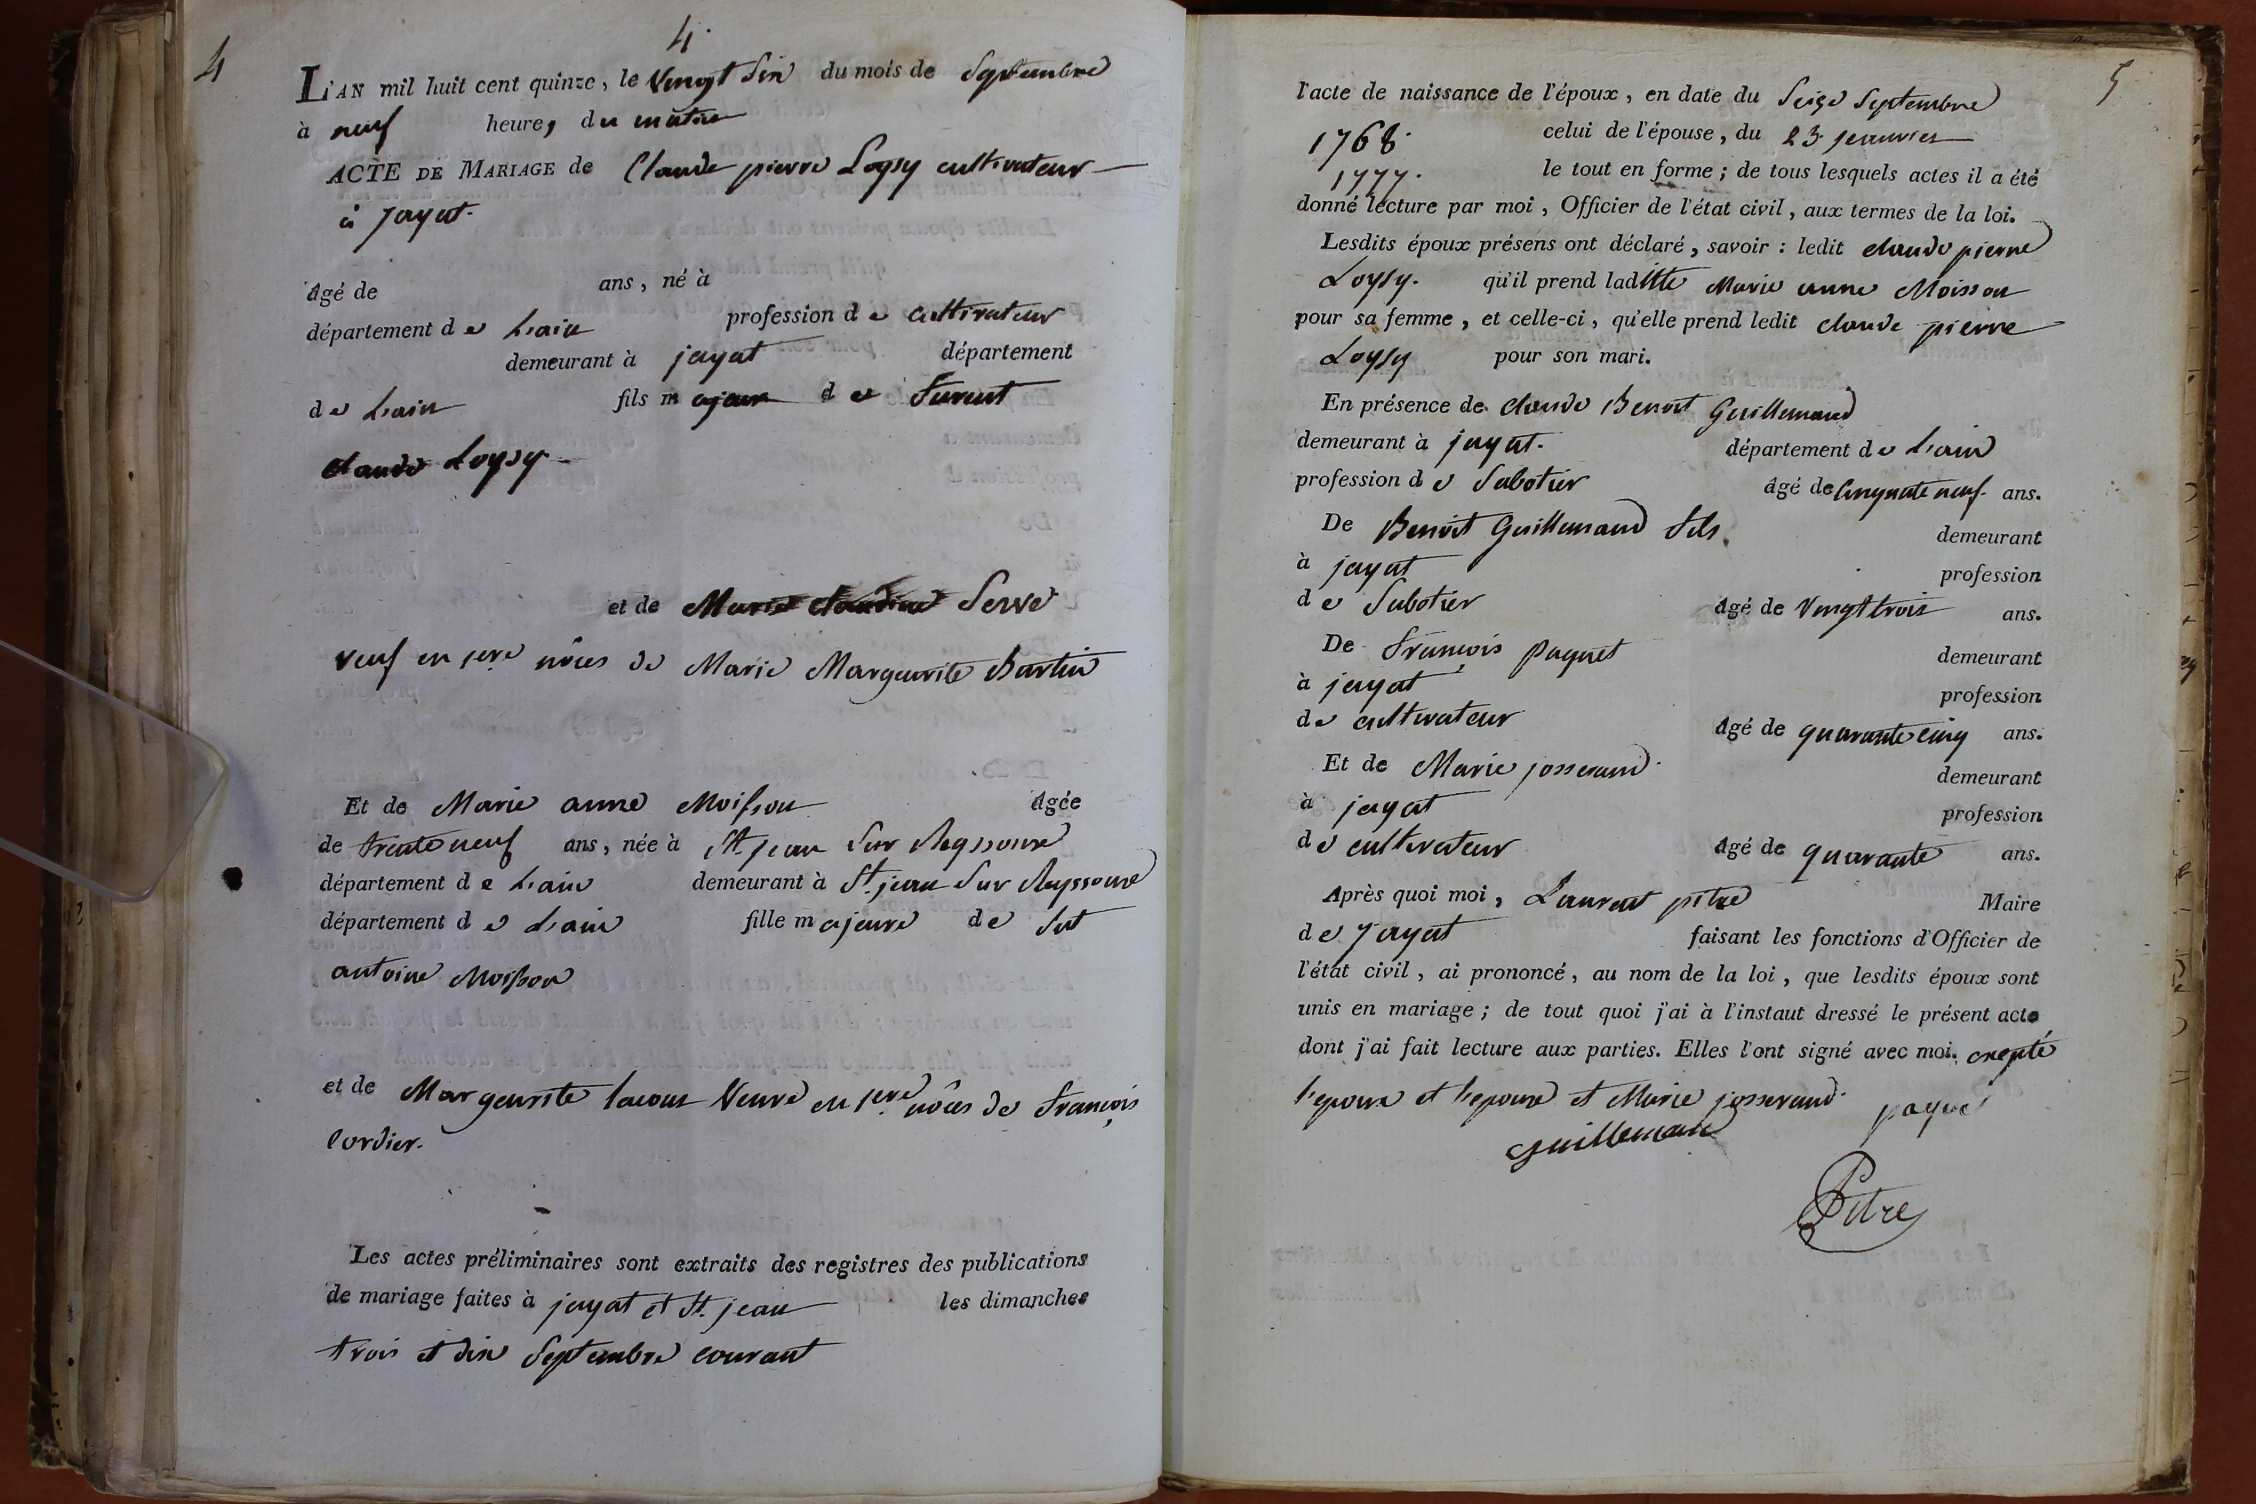 4
4.
L'AN mil huit cent quinze, le vingt Six du mois de Septembre
à neuf heures, du matin
ACTE DE MARIAGE de Claude pierre Loysy cultivateur
à Jayat.
âgé de ans, né à
département de L'ain profession de cultivateur
demeurant à jayat département
de L'ain fils majeur de Furent
claude Loysy
et de Marie claudine Serve
veuf en 1ere nôces de Marie Marguerite Bartin
Et de Marie anne Moisson âgée
de trente neuf ans, née à St. jean Sur Reyssouze
département de L'ain demeurant à St. jean Sur Reyssouze
département de L'ain fille majeure de fut
antoine Moisson
et de Marguerite lacour Veuve en 1ere nôces de françois
Cordier.
Les actes préliminaires sont extraits des registres des publications
de mariage faites à jayat et St. jean les dimanches
trois et dix Septembre courant
5
l'acte de naissance de l'époux, en date du Seize Septembre
1768. celui de l'épouse, du 23 janvier
1777. le tout en forme; de tous lesquels actes il a été
donné lecture par moi, Officier de l'état civil, aux termes de la loi.
Lesdits époux présens ont déclaré, savoir : ledit claude pierre
Loysy. qu'il prend laditte Marie anne Moisson
pour sa femme, et celle-ci, qu'elle prend ledit claude pierre
Loysy pour son mari.
En présence de claude Benoit Guillemaud
demeurant à jayat. département de L'ain
profession de Sabotier âgé de Cinquate neuf ans.
De Benoit Guillemaud fils. demeurant
à jayat profession
de Sabotier âgé de Vingt trois ans.
De François paquet demeurant
à jayat profession
de cultivateur âgé de quarante cinq ans.
Et de Marie josserand. demeurant
à jayat profession
de cultivateur âgé de quarante ans.
Après quoi moi, Laurent pitre Maire
de Jayat faisant les fonctions d'Officier de
l'état civil, ai prononcé, au nom de la loi, que lesdits époux sont
unis en mariage; de tout quoi j'ai à l'instaut dressé le présent acte
dont j'ai fait lecture aux parties. Elles l'ont signé avec moi. excepté
l'epoux et l'epouse et Marie josserand.
paque
guillemaud
Pitre